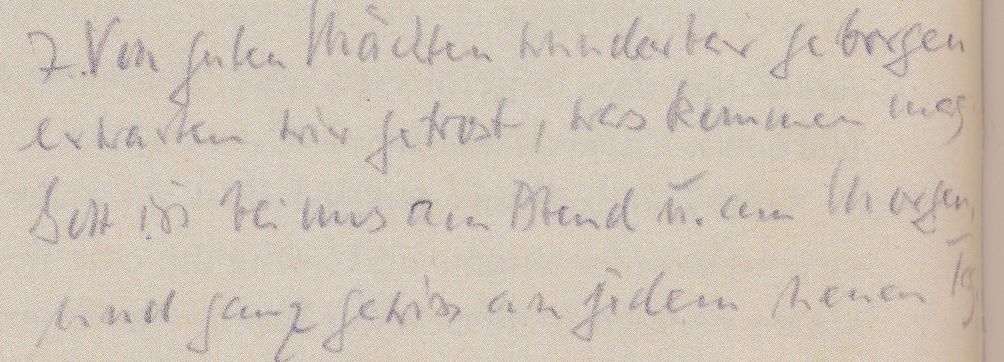 7. Von guten Mächten wunderbar geborgen
erwarten wir getrost, was kommen mag
Gott ist bei uns am Abend u. am Morgen,
und ganz gewiss an jedem neuen Tg